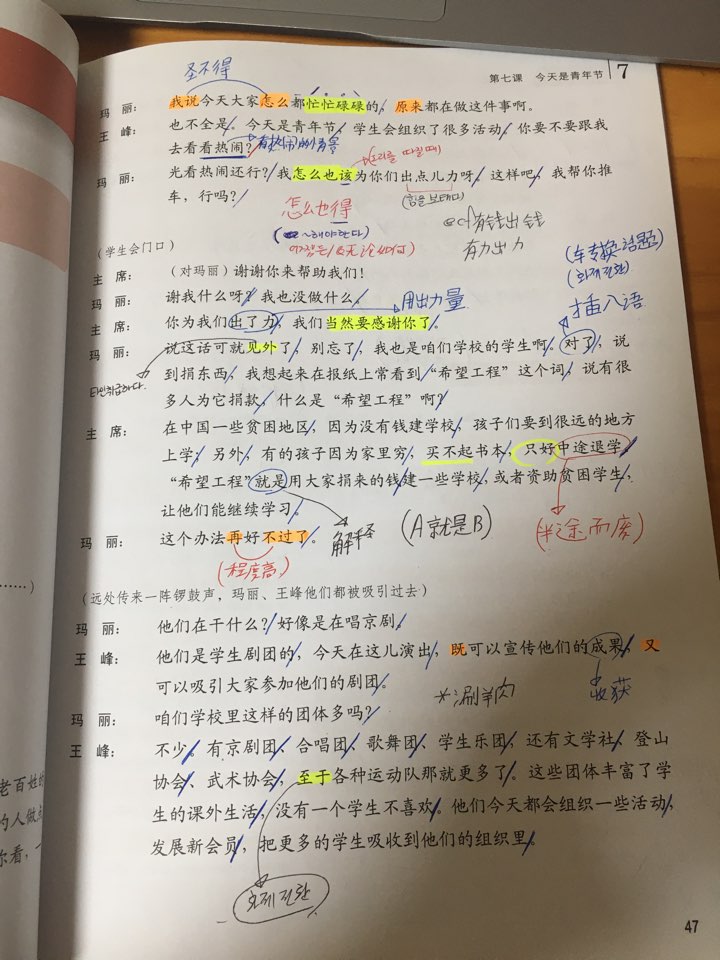 第七课 今天是青年节 7
圣不得
玛 丽： 我说今天大家怎么都忙忙碌碌的，原来都在做这件事啊。
王 峰： 也不全是。今天是青年节，学生会组织了很多活动，你要不要跟我
去看看热闹？
玛 丽： 光看热闹还行？我怎么也该为你们出点儿力呀，这样吧，我帮你推
车，行吗？
怎么也得
(힘을 보태다)
有钱出钱
有力出力
（学生会门口）
(화제전환)
主 席： （对玛丽）谢谢你来帮助我们！
玛 丽： 谢我什么呀？我也没做什么。
用出力量
插入语
主 席： 你为我们出了力，我们当然要感谢你了。
玛 丽： 说这话可就见外了，别忘了，我也是咱们学校的学生啊。对了，说
到捐东西，我想起来在报纸上常看到“希望工程”这个词，说有很
타인취급하다.
多人为它捐款，什么是“希望工程”啊？
主 席： 在中国一些贫困地区，因为没有钱建学校，孩子们要到很远的地方
上学；另外，有的孩子因为家里穷，买不起书本，只好中途退学。
“希望工程”就是用大家捐来的钱建一些学校，或者资助贫困学生，
让他们能继续学习。
玛 丽： 这个办法再好不过了。
解释
(A就是B)
(半途而废)
(程度高)
（远处传来一阵锣鼓声，玛丽、王峰他们都被吸引过去）
玛 丽： 他们在干什么？好像是在唱京剧。
王 峰： 他们是学生剧团的，今天在这儿演出，既可以宣传他们的成果，又
可以吸引大家参加他们的剧团。
*涮羊肉
收获
玛 丽： 咱们学校里这样的团体多吗？
王 峰： 不少。有京剧团、合唱团、歌舞团、学生乐团，还有文学社、登山
协会、武术协会，至于各种运动队那就更多了。这些团体丰富了学
生的课外生活，没有一个学生不喜欢。他们今天都会组织一些活动，
发展新会员，把更多的学生吸收到他们的组织里。
화제전환
老百姓的
的人做点
你看，一
47